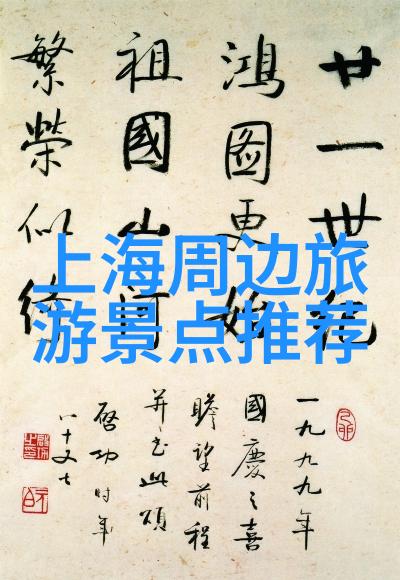 廿一世紀
鴻圖更始
祖國山河
繁榮似
上海周边旅
游景点推荐
一九九九年
國慶之喜
瞻望前程
并书此頌
啓功時年
八十又七